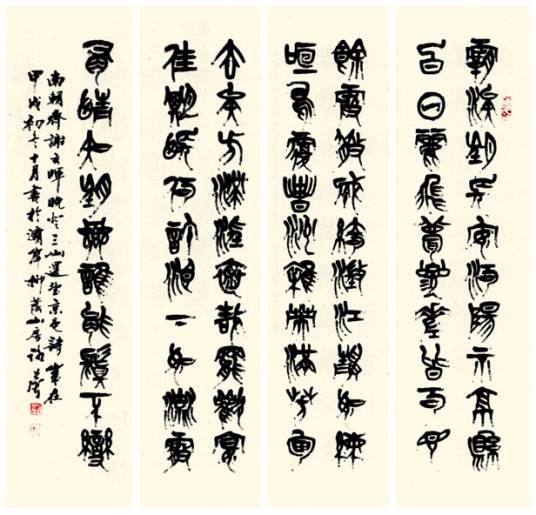 灞涘望長安河陽視京縣
白日麗飛甍參差皆可見
餘霞散成綺澄江靜如練
喧鳥覆春洲雜英滿芳甸
去矣方滯淫懷哉罷歡宴
佳期悵何許淚下如流霰
有情知望鄉誰能鬒不變
南朝齊謝玄暉晚登三山還望京邑詩歲在
甲戌初冬十月書於濟南柳蔭山房